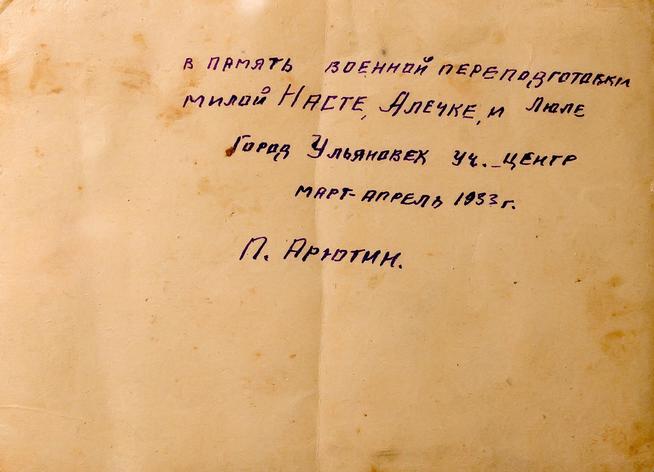 В ПАМЯТЬ ВОЕННОЙ ПЕРЕПОДГОТОВКИ
МИЛОЙ НАСТЕ, АЛЕЧКЕ, И ЛЮЛЕ
ГОРОД УЛЬЯНОВЕК УЧ. - ЦЕНТР
МАРТ-АПРЕЛЬ 1933 г.
П. АРЮТИН.